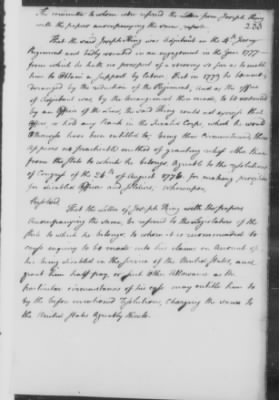 The committee to whom was referred the Letter from Joseph Thing
with the papers accompanying the same, report
233
That the said Joseph Thing was Adjutant in the 4th Jersey
Regiment and badly wounded in an engagement in the year 1777
from which he hath no prospect of a recovery so far as to enable
him to Obtain a Support by labour. That in 1779 he became
deranged by the reduction of the Regiment, and as the office
of Adjutant was, by the arrangement then made, to be executed
by an Officer of the Line, the said Thing could not accept that
Office, or hold any Rank in the Invalid Corps, which he would
otherwise have been entitled to; being thus circumstanced there
appears no practicable method of granting relief other than
from the State to which he belongs Agreeable to the resolutions
of Congress of the 26th of August 1776 for making provision
for disabled Officers and soldiers, whereupon
Resolved
That the Letter of Joseph Thing with the papers
accompanying the same, be referred to the Legislature of the
State to which he belongs, to whom it is recommended to
cause enquiry to be made into his claim on Account of
his being disabled in the service of the United States, and
grant him half pay, or such other Allowance as the
particular circumstances of his case may entitle him to
by the before mentioned Resolutions, charging the same to
the United States Agreeably thereto.